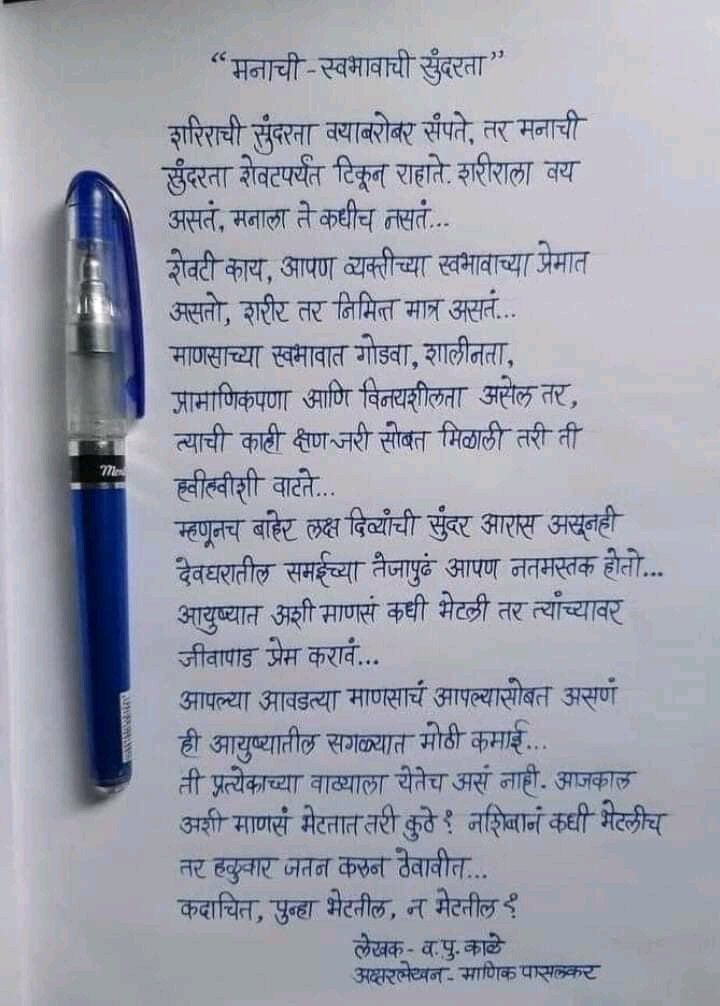 “मनाची - स्वभावाची सुंदरता”
शरिराची सुंदरता वयाबरोबर संपते, तर मनाची
सुंदरता शेवटपर्यंत टिकून राहाते. शरीराला वय
असतं, मनाला ते कधीच नसतं...
शेवटी काय, आपण व्यक्तीच्या स्वभावाच्या प्रेमात
असतो, शरीर तर निमित्त मात्र असतं...
माणसाच्या स्वभावात गोडवा, शालीनता,
प्रामाणिकपणा आणि विनयशीलता असेल तर,
त्याची काही क्षण जरी सोबत मिळाली तरी ती
हवीहवीशी वाटते...
म्हणूनच बाहेर लक्ष दिव्यांची सुंदर आरास असूनही
देवघरातील समईच्या तेजापुढं आपण नतमस्तक होतो...
आयुष्यात अशी माणसं कधी भेटली तर त्यांच्यावर
जीवापाड प्रेम करावं...
आपल्या आवडत्या माणसाचं आपल्यासोबत असणं
ही आयुष्यातील सगळ्यात मोठी कमाई...
ती प्रत्येकाच्या वाट्याला येतेच असं नाही. आजकाल
अशी माणसं भेटतात तरी कुठे? नशिबानं कधी भेटलीच
तर हळुवार जतन करुन ठेवावीत...
कदाचित, पुन्हा भेटतील, न भेटतील?
लेखक - व. पु. काळे
अक्षरलेखन - माणिक पासलकर